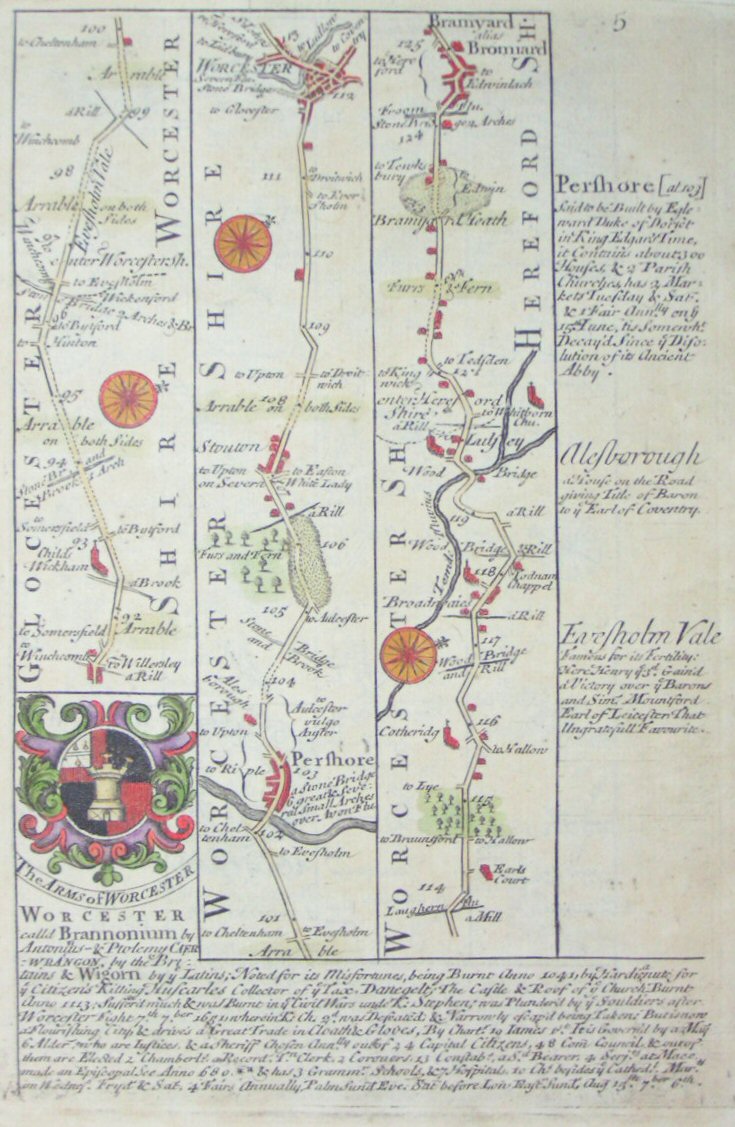 5
100
to Cheltenham
Arrable
a Rill
99
to
Winchcomb
98
Evesholm Vale
Arrable on both
Sides
Winchcomb
97
enter Worcestersh.
to Evesholm
Wickenford
Bridge 2 Arches &
96
to Bytford
to
Hinton
95
Arrable
on both Sides
94
Stone Br. and
Brook 1 Arch
to
Somersfield
to Bytford
93
Childs
Wickham
a Brook
92
to Somersfield
Arrable
to
Winchcomb
to Willersley
a Rill
GLOCESTER
WORCESTER
SHIRE
The ARMS of WORCESTER
to Hereford
to Ludlow
113
WORCESTER
Severn Flu.
Stone Bridge
112
to Glocester
to Droitwich
111
to Ever
sholm
110
109
to Upton
to Droit
wich
108
Arrable on both Sides
Stouton
to Upton
on Severn
to Easton
White Lady
107
a Rill
106
Furs and Fern
105
to Aulcester
Stone
and
Bridge
Brook
104
Ales
borough
to
Aulcester
vulgo
Auster
to Upton
Pershore
to Riple
103
a Stone Bridge
6 great & seve
ral small Arches
over Avon Flu
to Chel
tenham
102
to Evesholm
101
to Cheltenham
to Evesholm
Arrable
WORCESTER
SHIRE
Bramyard
alias
Bromiard
125
to Here
ford
to
Edwinlach
Froom
Flu.
Stone Bridge 2 Arches
124
to Tewks
bury
Edwin
Bramyard Heath
Furrs & Fern
122
to Tedsden
121
to King
wick
enter Hereford
Shire
to Whitborn
Chu.
a Rill
120
Ludsey
Wood
Bridge
119
a Rill
Temd Fluvius
Wood Bridge & Rill
118
Lodnam
Chappel
Broadwaies
a Rill
117
Wood Bridge
and Rill
116
Cotheridg
to Hallow
to Lye
115
to Braunsford
to Hallow
Earls
Court
114
Laughern flu
a Mill
WORCESTERSH
HEREFORD SH.
Pershore [al. 103]
Said to be Built by Egle-
ward Duke of Dorset
in King Edgars Time,
it Contains about 300
Houses, & 2 Parish
Churches, has 2 Mar-
kets Tuesday & Sat.
& 1 Fair Annlly on ye
15th June, tis Somewht.
Decay'd Since ye Diso-
lution of its Ancient
Abby.
Alesborough
a House on the Road
giving Title of Baron
to ye Earl of Coventry.
Evesholm Vale
Famous for its Fertility:
Here Henry ye 3d. Gain'd
a Victory over ye Barons
and Sim. Mountford
Earl of Leicester That
Ungratefull Favourite.
WORCESTER
call'd Brannonium by
Antonius & Ptolemy CAER
WRANGON, by the Bry-
tains & Wigorn by ye Latins; Noted for its Misfortunes, being Burnt Anno 1041, by Hardiqnut, for
ye Citizens Killing Huscarles Collector of ye Tax Danegelt; The Castle & Roof of ye Church Burnt
Anno 1113; Suffer'd much & was Burnt in ye Civil Wars undr K. Stephen; was Plunder'd by ye Souldiers after
Worcester Fight 7th 7ber 1651 wherein K. Ch. 2d. was Defeated & Narrowly escap'd being Taken; But is now
a Flourishing City & drives a Great Trade in Cloath & Gloves, By Chartr. 19 James 1st. It is Govern'd by a May
6 Aldermn. who are Justices, & a Sheriff Chosen Annlly out of 24 Capital Citizens, 48 Com Council, & out of
them are Elected 2 Chamberls. a Record. Tn. Clerk. 2 Coroners. 13 Constabs. a Sd. Bearer. 4 Serjts. at Mace.
made an Episcopal See Anno 680. & has 3 Gramms. Schools, & 7 Hospitals. 10 Chs. besides ye Cathedl.
on Wednes. Fryd. & Sat. 4 Fairs Annually, Palm Sund. Eve. Sat. before Low East Sund. Aug 15th 7ber 6th.